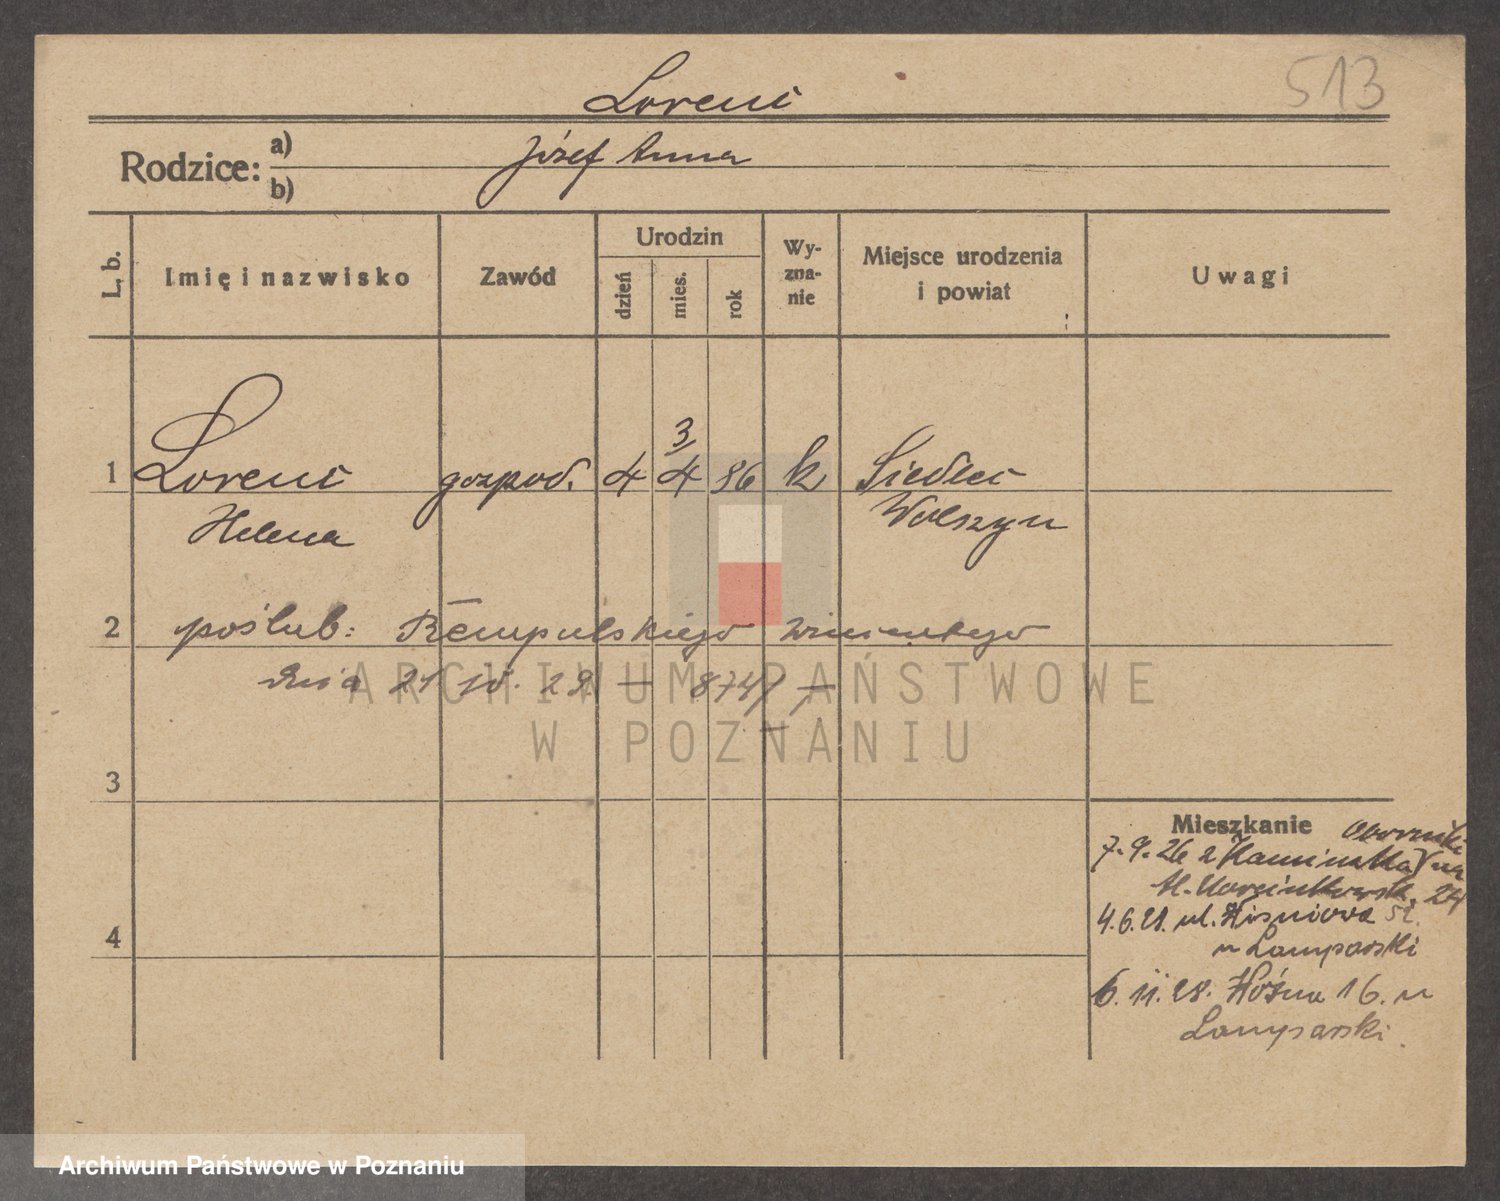 513
Lorenc
Rodzice: a) Józef Anna
b)
L. b. Imię i nazwisko Zawód Urodzin dzień mies. rok Wy-zna-nie Miejsce urodzenia i powiat Uwagi
3
1 Lorenc gospod. 4 4 86 k Siedlec
Helena Wolsztyn
2 poślub: Rempulskiego Wincentego
dnia 21 IV. 29. — 8747 —
3
Mieszkanie Oborniki
7.9.26 z
M. Marcinkowsk. 24
4.6.28. ul. Wiśniowa 52.
u Lamparski
4
6.11.28. Woźna 16. u
Lamparski.
ARCHIWUM PAŃSTWOWE
W POZNANIU
Archiwum Państwowe w Poznaniu